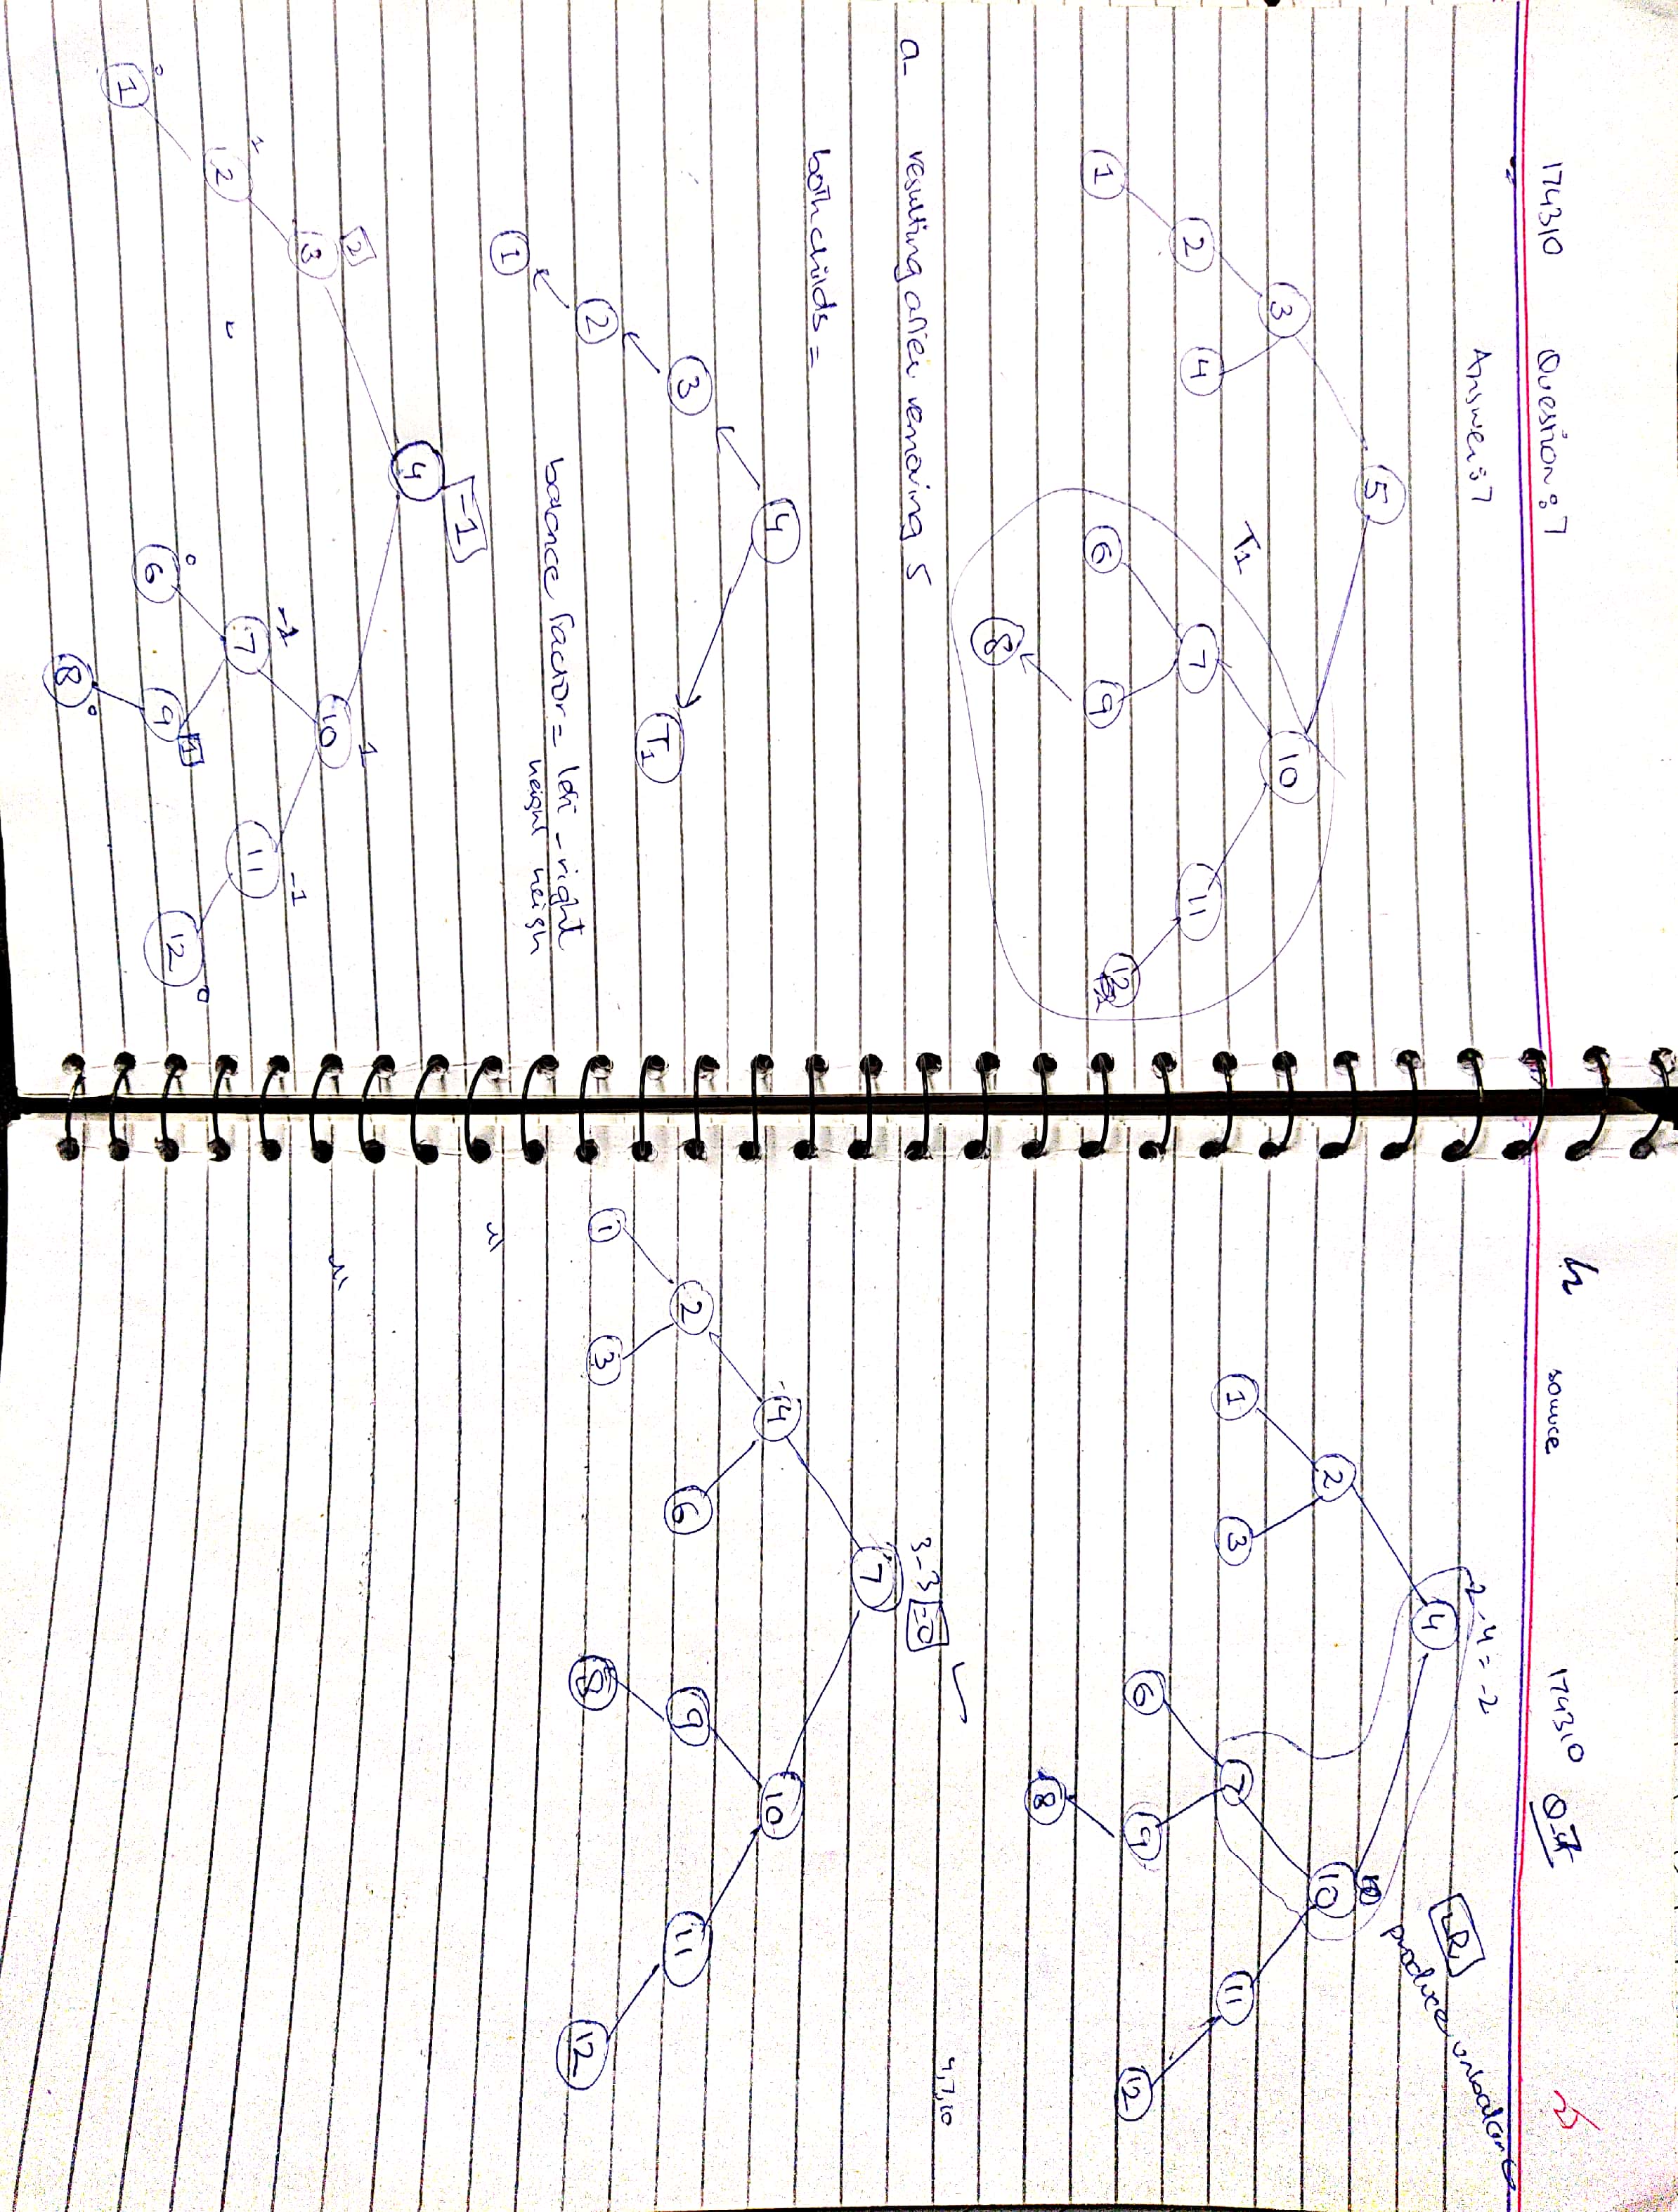 174310 Question:7
Answer:7
5
3 10
T1
2 4 7 11
1 6 9 12
8
a- resulting after removing 5
both childs =
4
3 T1
2
balance factor = left - right
height heigh
1
-1
4
2 1
3 10
1 -1 -1
2 7 11
0 0 1 0
1 6 9 12
8 0
source 174310 Q-7
2-4=-2
4
produce unbalance
2 10
1 3 7 11
6 9 12
8
4,7,10
3-3=0
7
4 10
2 6 9 11
1 3 8 12